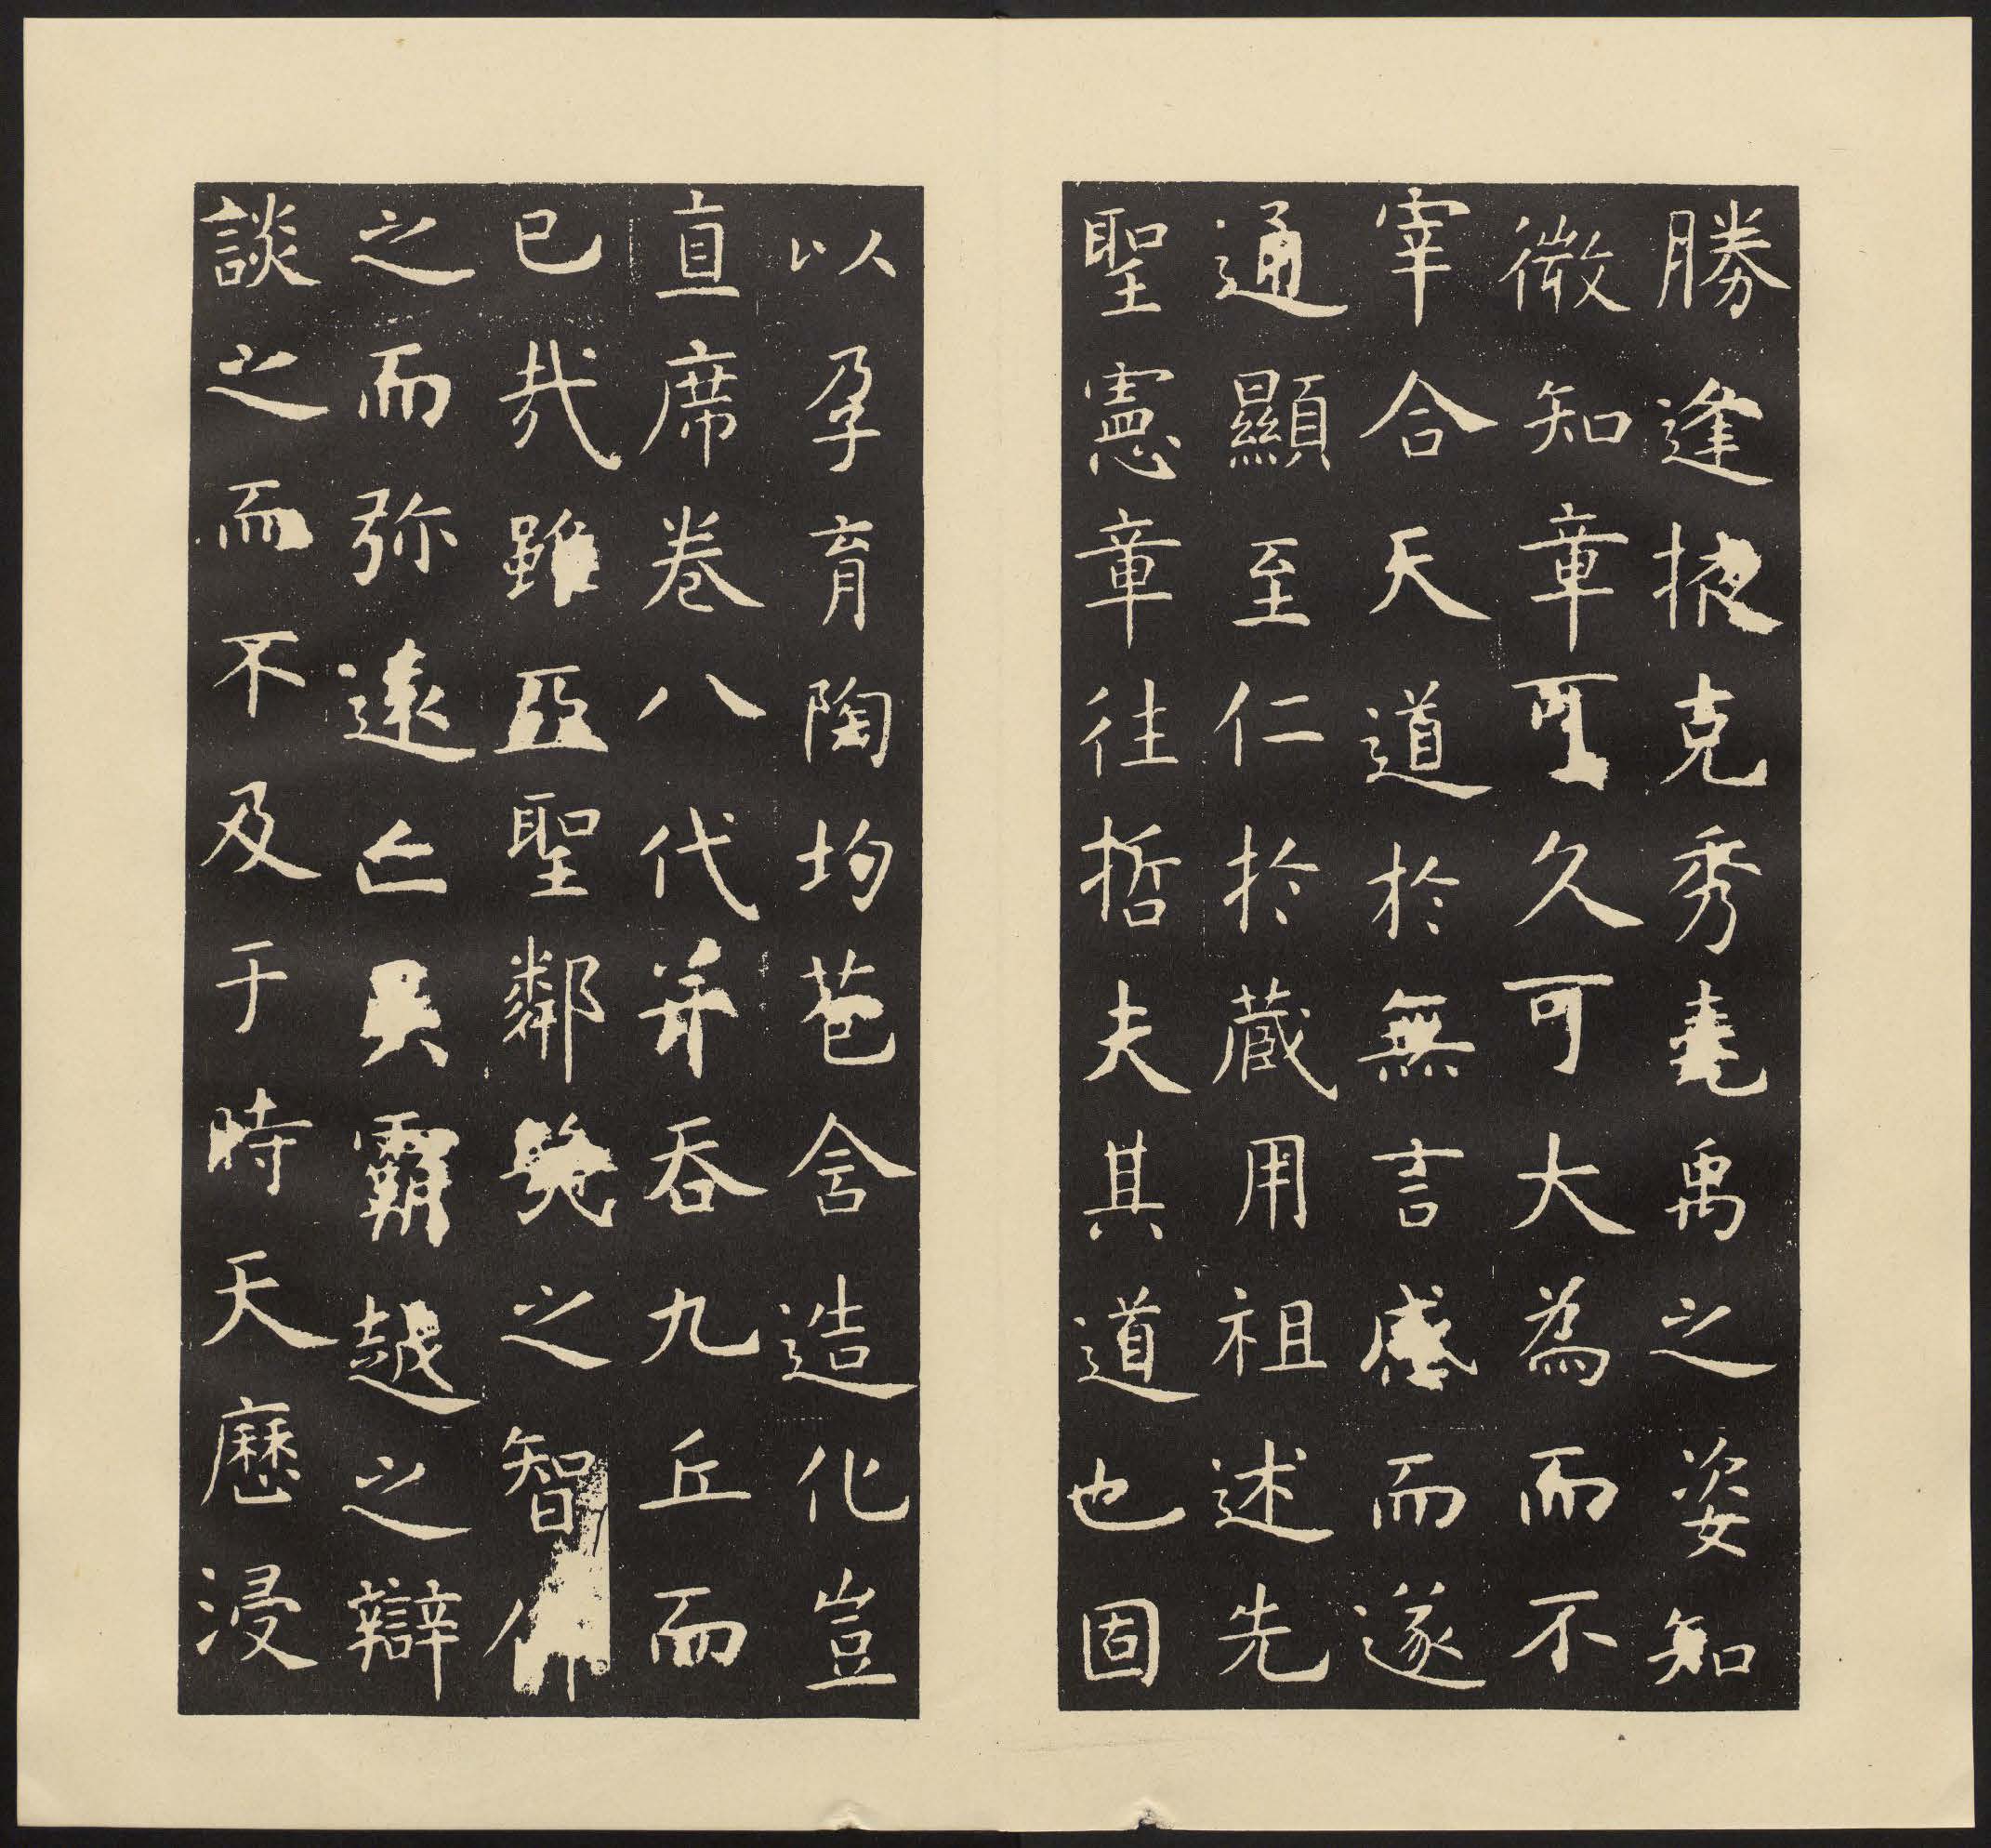 勝逢掖克秀堯禹之姿知
微知章可久可大為而不
宰合天道於無言感而遂
通顯至仁於藏用祖述先
聖憲章往哲夫其道也固
以孕育陶均苞含造化豈
直席卷八代并吞九丘而
已哉雖亞聖鄰幾之智仰
之而弥遠亡吳霸越之辯
談之而不及于時天歷浸